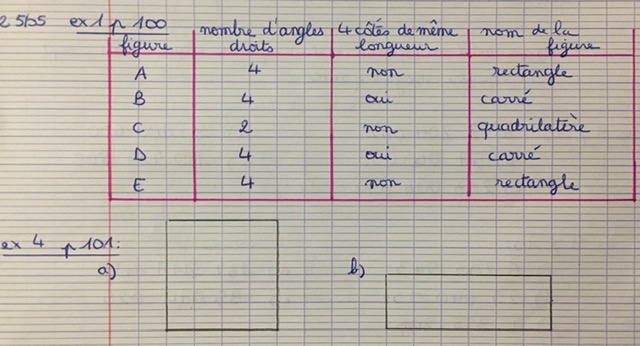 25/05 ex 1 p 100
figure nombre d'angles droits 4 côtés de même longueur nom de la figure
A 4 non rectangle
B 4 oui carré
C 2 non quadrilatère
D 4 oui carré
E 4 non rectangle
ex 4 p 101:
a) b)